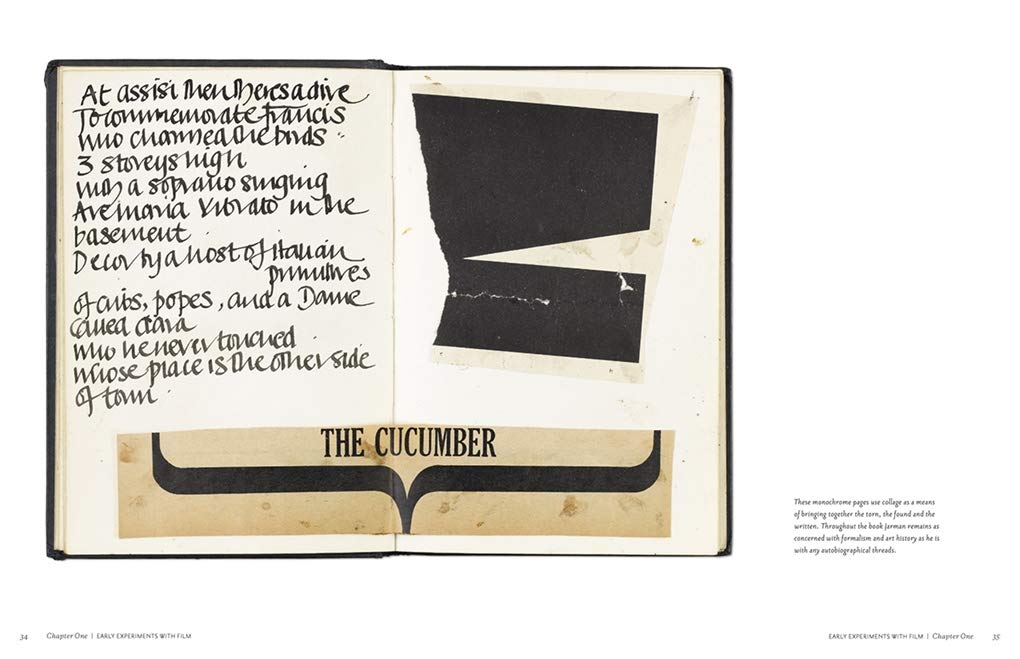 At assisi then theres a dive
To commemorate francis
who charmed the birds
3 storeys high
with a soprano singing
Ave maria vibrato in the
basement
Decor by a host of Italian
primitives
of cribs, popes, and a Dame
called clara
who he never touched
whose place is the other side
of town
THE CUCUMBER
These monochrome pages use collage as a means
of bringing together the torn, the found and the
written. Throughout the book Jarman remains as
concerned with formalism and art history as he is
with any autobiographical threads.
34 Chapter One | EARLY EXPERIMENTS WITH FILM
EARLY EXPERIMENTS WITH FILM | Chapter One 35